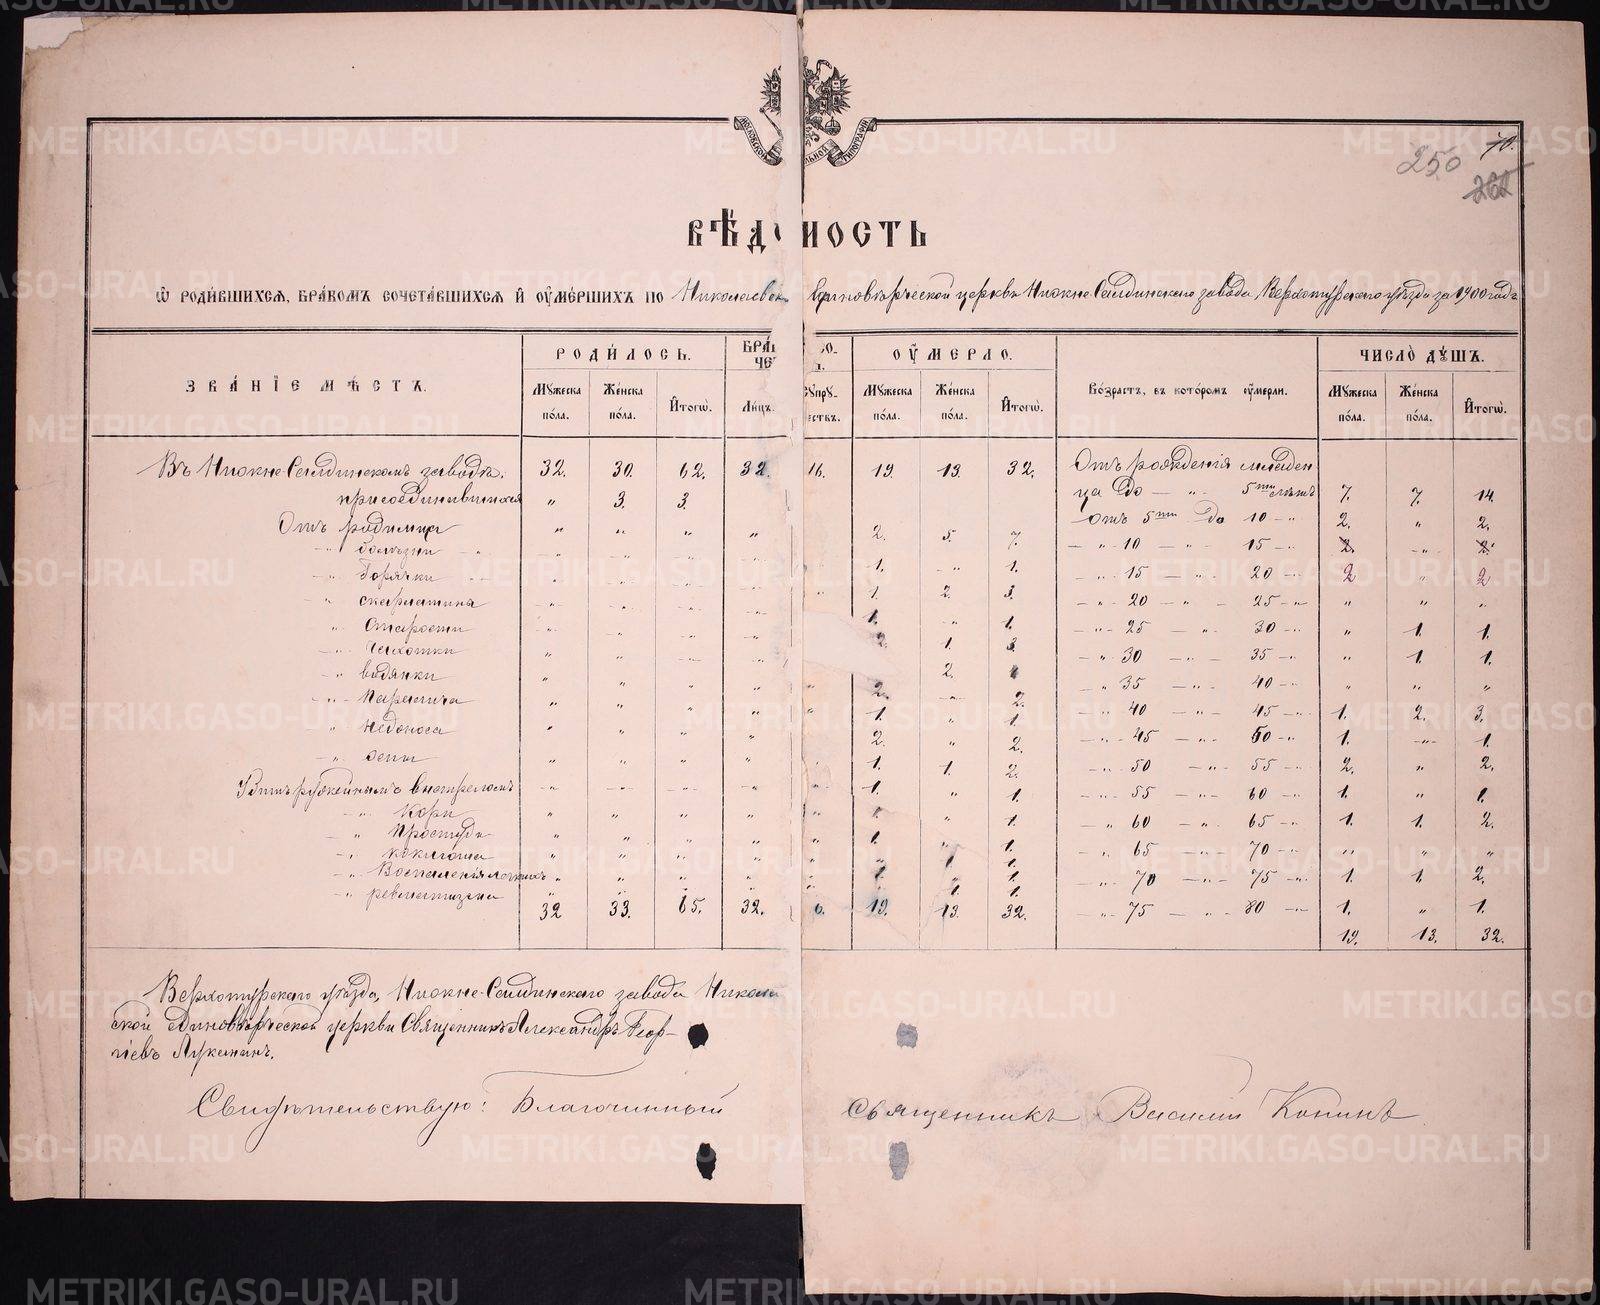 МОСКОВСКОЙ ТИПОГРАФІИ
250 70.
262
ВѢДОМОСТЬ
Ѡ РОДИВШИХСЯ, БРАКОМЪ СОЧЕТАВШИХСЯ И ОУМЕРШИХЪ ПО Николаевской Единовѣрческой церкви Нижне-Салдинскаго завода Верхотурскаго уѣзда за 1900 годъ
ЗВАНІЕ МѢСТЪ. РОДИЛОСЬ. ОУМЕРЛО. Возрастъ, въ которомъ оумерли. ЧИСЛО ДУШЪ.
Мужеска пола. Женска пола. Итогѡ. Лицъ. Супружествъ. Мужеска пола. Женска пола. Итогѡ. Мужеска пола. Женска пола. Итогѡ.
Въ Нижне-Салдинскомъ заводѣ. 32. 30. 62. 32. 16. 19. 13. 32. Отъ рожденія младен
присоединившихся „ 3. 3. ца до — „ 5ти лѣтъ 7. 7. 14.
Отъ родимца „ „ „ „ 2. 5. 7. отъ 5ти до 10 2. „ 2.
болѣзни 1. „ 1. 10 — 15 2. „ 2.
Горячки 1. 2. 3. 15 — 20 2 „ 2
скарлатина 1. „ 1. 20 — 25 „ „ „
Старости 2. 1. 3. 25 — 30 „ 1. 1.
Чахотки 2. 30 — 35 „ 1. 1.
водянки 2. „ 2. 35 — 40 „ „ „
Паралича 1. „ 1. 40 — 45 1. 2. 3.
недоноса 2. „ 2. 45 — 50 1. „ 1.
оспы 1. 1. 2. 50 — 55 2. „ 2.
Убитъ ружейнымъ выстреломъ 1. „ 1. 55 — 60 1. „ 1.
Кори „ 1. 60 — 65 1. 1. 2.
Простуды 1. „ 1. 65 — 70 „ „ „
коклюша 1 1. 70 — 75 1. 1. 2.
Воспаленія легкихъ 1. 1.
ревматизма 75 — 80 1. „ 1.
32 33. 65. 32. 16. 19. 13. 32. 19. 13. 32.
Верхотурскаго уѣзда, Нижне-Салдинскаго завода Никола
ской единовѣрческой церкви Священникъ Александръ Геор-
гіевъ Луканинъ.
Свидѣтельствую: Благочинный Священникъ Василий Копинъ
METRIKI.GASO-URAL.RU